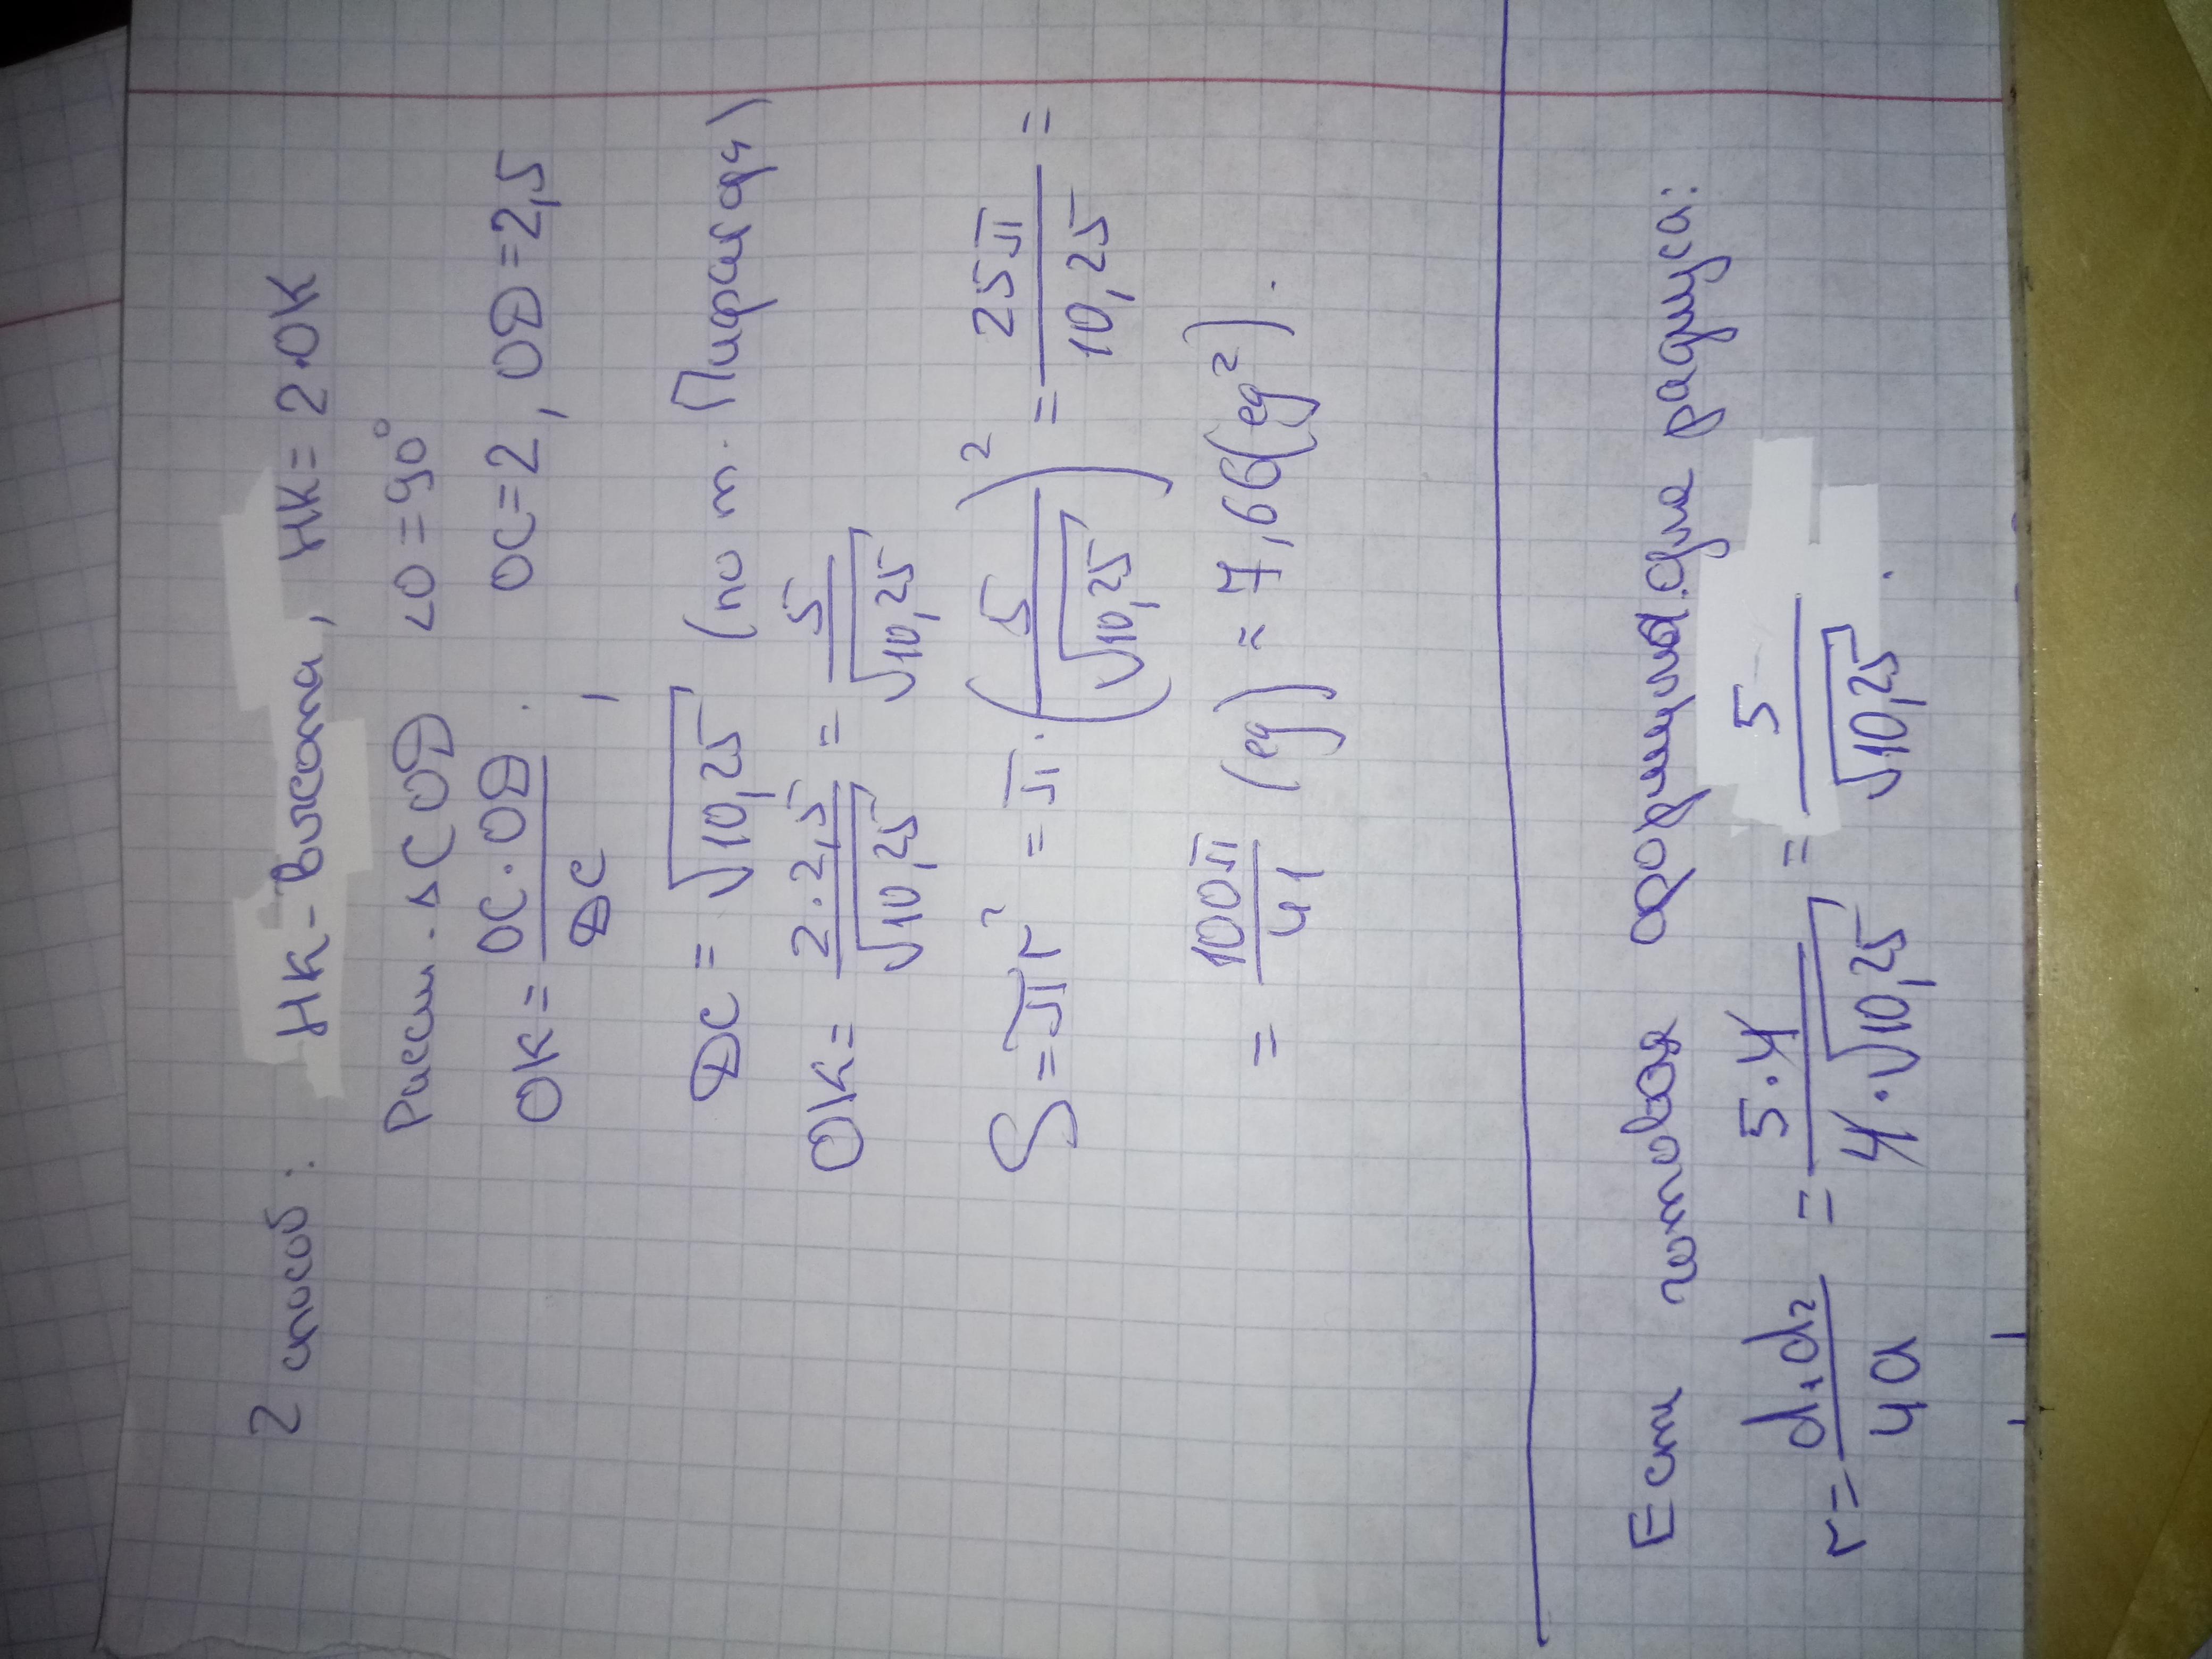 2 способ: НК-высота, НК=2·ОК
Рассм. ΔСОD ∠О=90°
ОК=ОС·ОD/DC. ОС=2, ОD=2,5
DC=√10,25 (по т. Пифагора)
ОК=2·2,5/√10,25=5/√10,25
S=πr²=π·(5/√10,25)²=25π/10,25=
=100π/41 (ед)≈7,66(ед²).
Есть готовая формула для радиуса:
r=d₁d₂/4a=5·4/4·√10,25=5/√10,25.